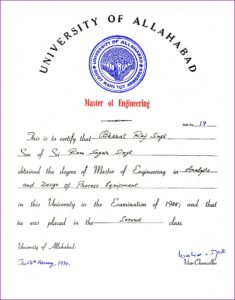 UNIVERSITY OF ALLAHABAD
UNIVERSITY OF ALLAHABAD
QUOT RAMI TOT ARBORES
Master of Engineering
Roll No. 17
This is to certify that Bharat Raj Singh
Son of Sri Ram Sagar Singh
obtained the degree of Master of Engineering in Analysis
and Design of Process Equipment
in this University in the Examination of 1988; and that
he was placed in the Second class.
University of Allahabad:
The February, 1990.
Vice-Chancellor